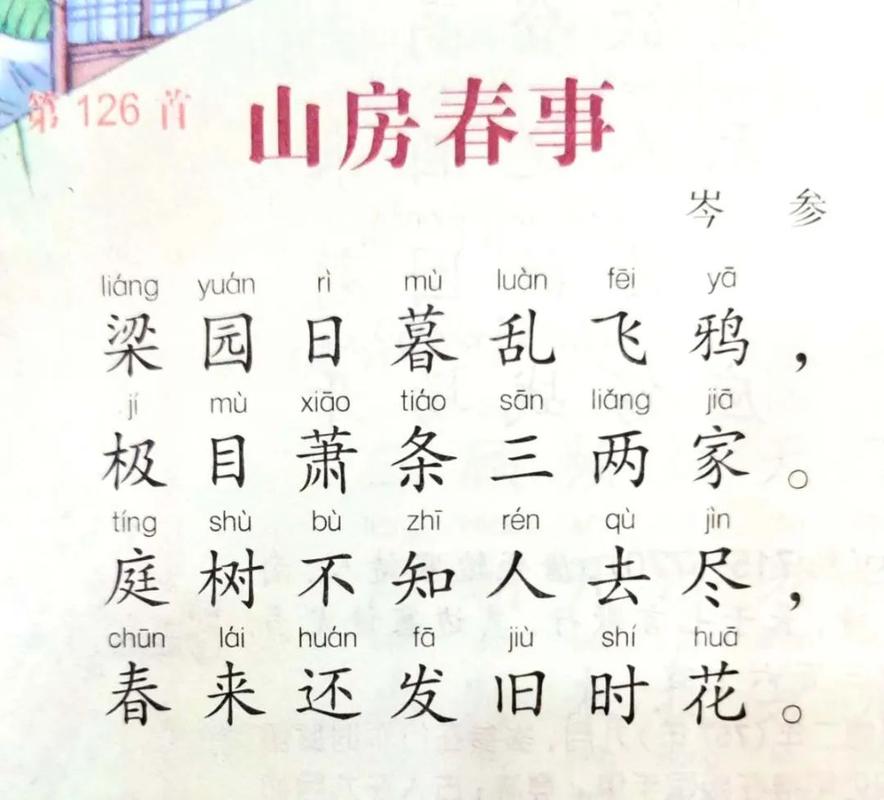 第 126 首
山房春事
岑 参
liáng yuán rì mù luàn fēi yā
梁园日暮乱飞鸦，
jí mù xiāo tiáo sān liǎng jiā
极目萧条三两家。
tíng shù bù zhī rén qù jìn
庭树不知人去尽，
chūn lái huán fā jiù shí huā
春来还发旧时花。